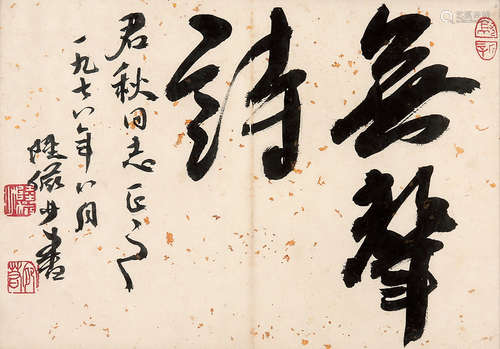 無聲
詩
君秋同志正之
一九七八年八月
陸儼少書